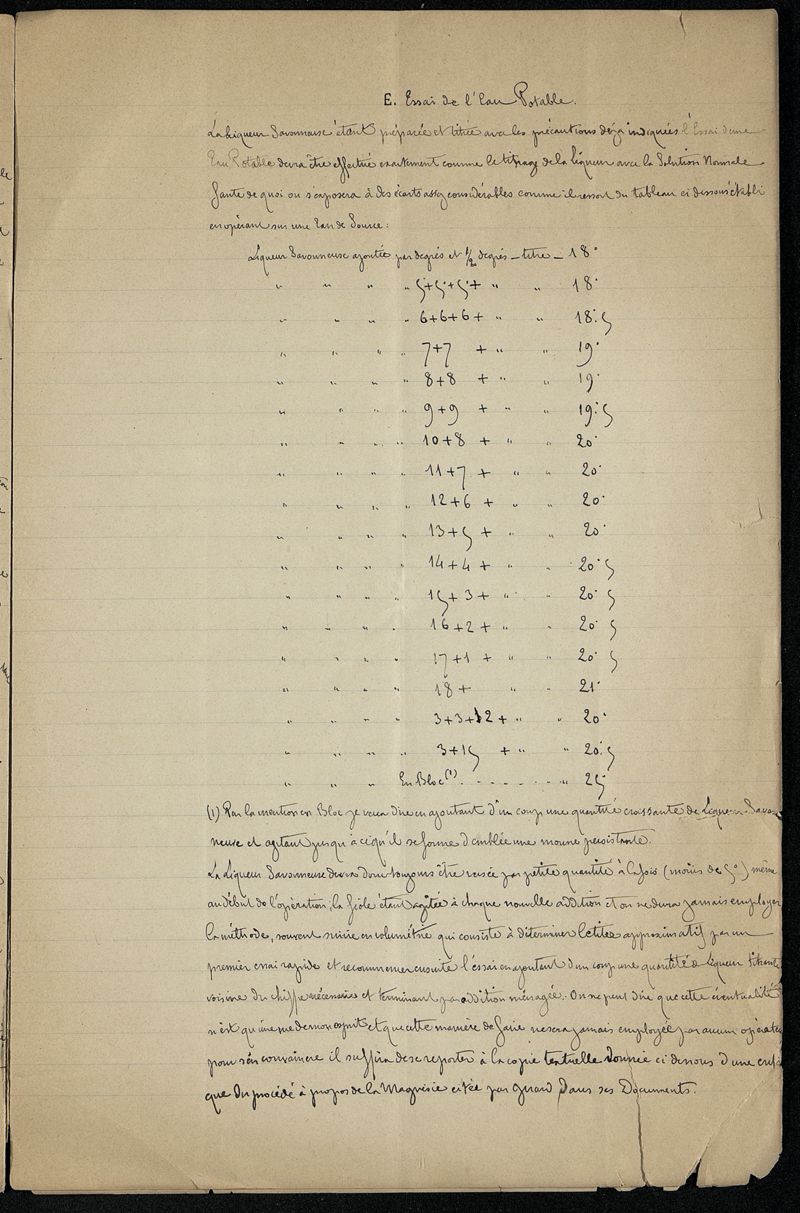 E. Essai de l'Eau Potable.
La Liqueur Savonneuse étant préparée et titrée avec les précautions déjà indiquées l'Essai d'une
Eau Potable devra être effectué exactement comme le titrage de la Liqueur avec la Solution Normale
faute de quoi on s'exposera à des écarts assez considérables comme il ressort du tableau ci dessous établi
en opérant sur une Eau de Source :
Liqueur Savonneuse ajoutée par degrés et 1/2 degrés — titre — 18°
" " " " 5+5+5+ " " 18°
" " " " 6+6+6+ " " 18°5
" " " " 7+7 + " " 19°
" " " " 8+8 + " " 19°
" " " " 9+9 + " " 19°5
" " " " 10+8 + " " 20°
" " " " 11+7 + " " 20°
" " " " 12+6 + " " 20°
" " " " 13+5 + " " 20°
" " " " 14+4 + " " 20°5
" " " " 15+3 + " " 20°5
" " " " 16+2 + " " 20°5
" " " " 17+1 + " " 20°5
" " " " 18+ " " 21°
" " " " 3+3+12+ " " 20°
" " " " 3+15 + " " 20°5
" " " En Bloc (1) - - - - - - " 25
(1) Par la mention en Bloc je veux dire en ajoutant d'un coup une quantité croissante de Liqueur Savon-
neuse et agitant jusqu'à ce qu'il se forme d'emblée une mousse persistante.
La Liqueur Savonneuse devra donc toujours être versée par petite quantité à la fois (moins de 5°) même
au début de l'opération, la fiole étant agitée à chaque nouvelle addition et on ne devra jamais employer
la méthode, souvent suivie en volumétrie qui consiste à déterminer le titre approximatif par un
premier essai rapide et recommencer ensuite l'essai en ajoutant d'un coup une quantité de Liqueur titrante
voisine du chiffre nécessaire et terminant par addition ménagée. On ne peut dire que cette éventualité
n'est qu'une vue de mon esprit et que cette manière de faire ne sera jamais employée par aucun opérateur
pour s'en convaincre il suffira de se reporter à la copie textuelle donnée ci dessous d'une criti-
que du procédé à propos de la Magnésie citée par Gérard dans ses Documents.